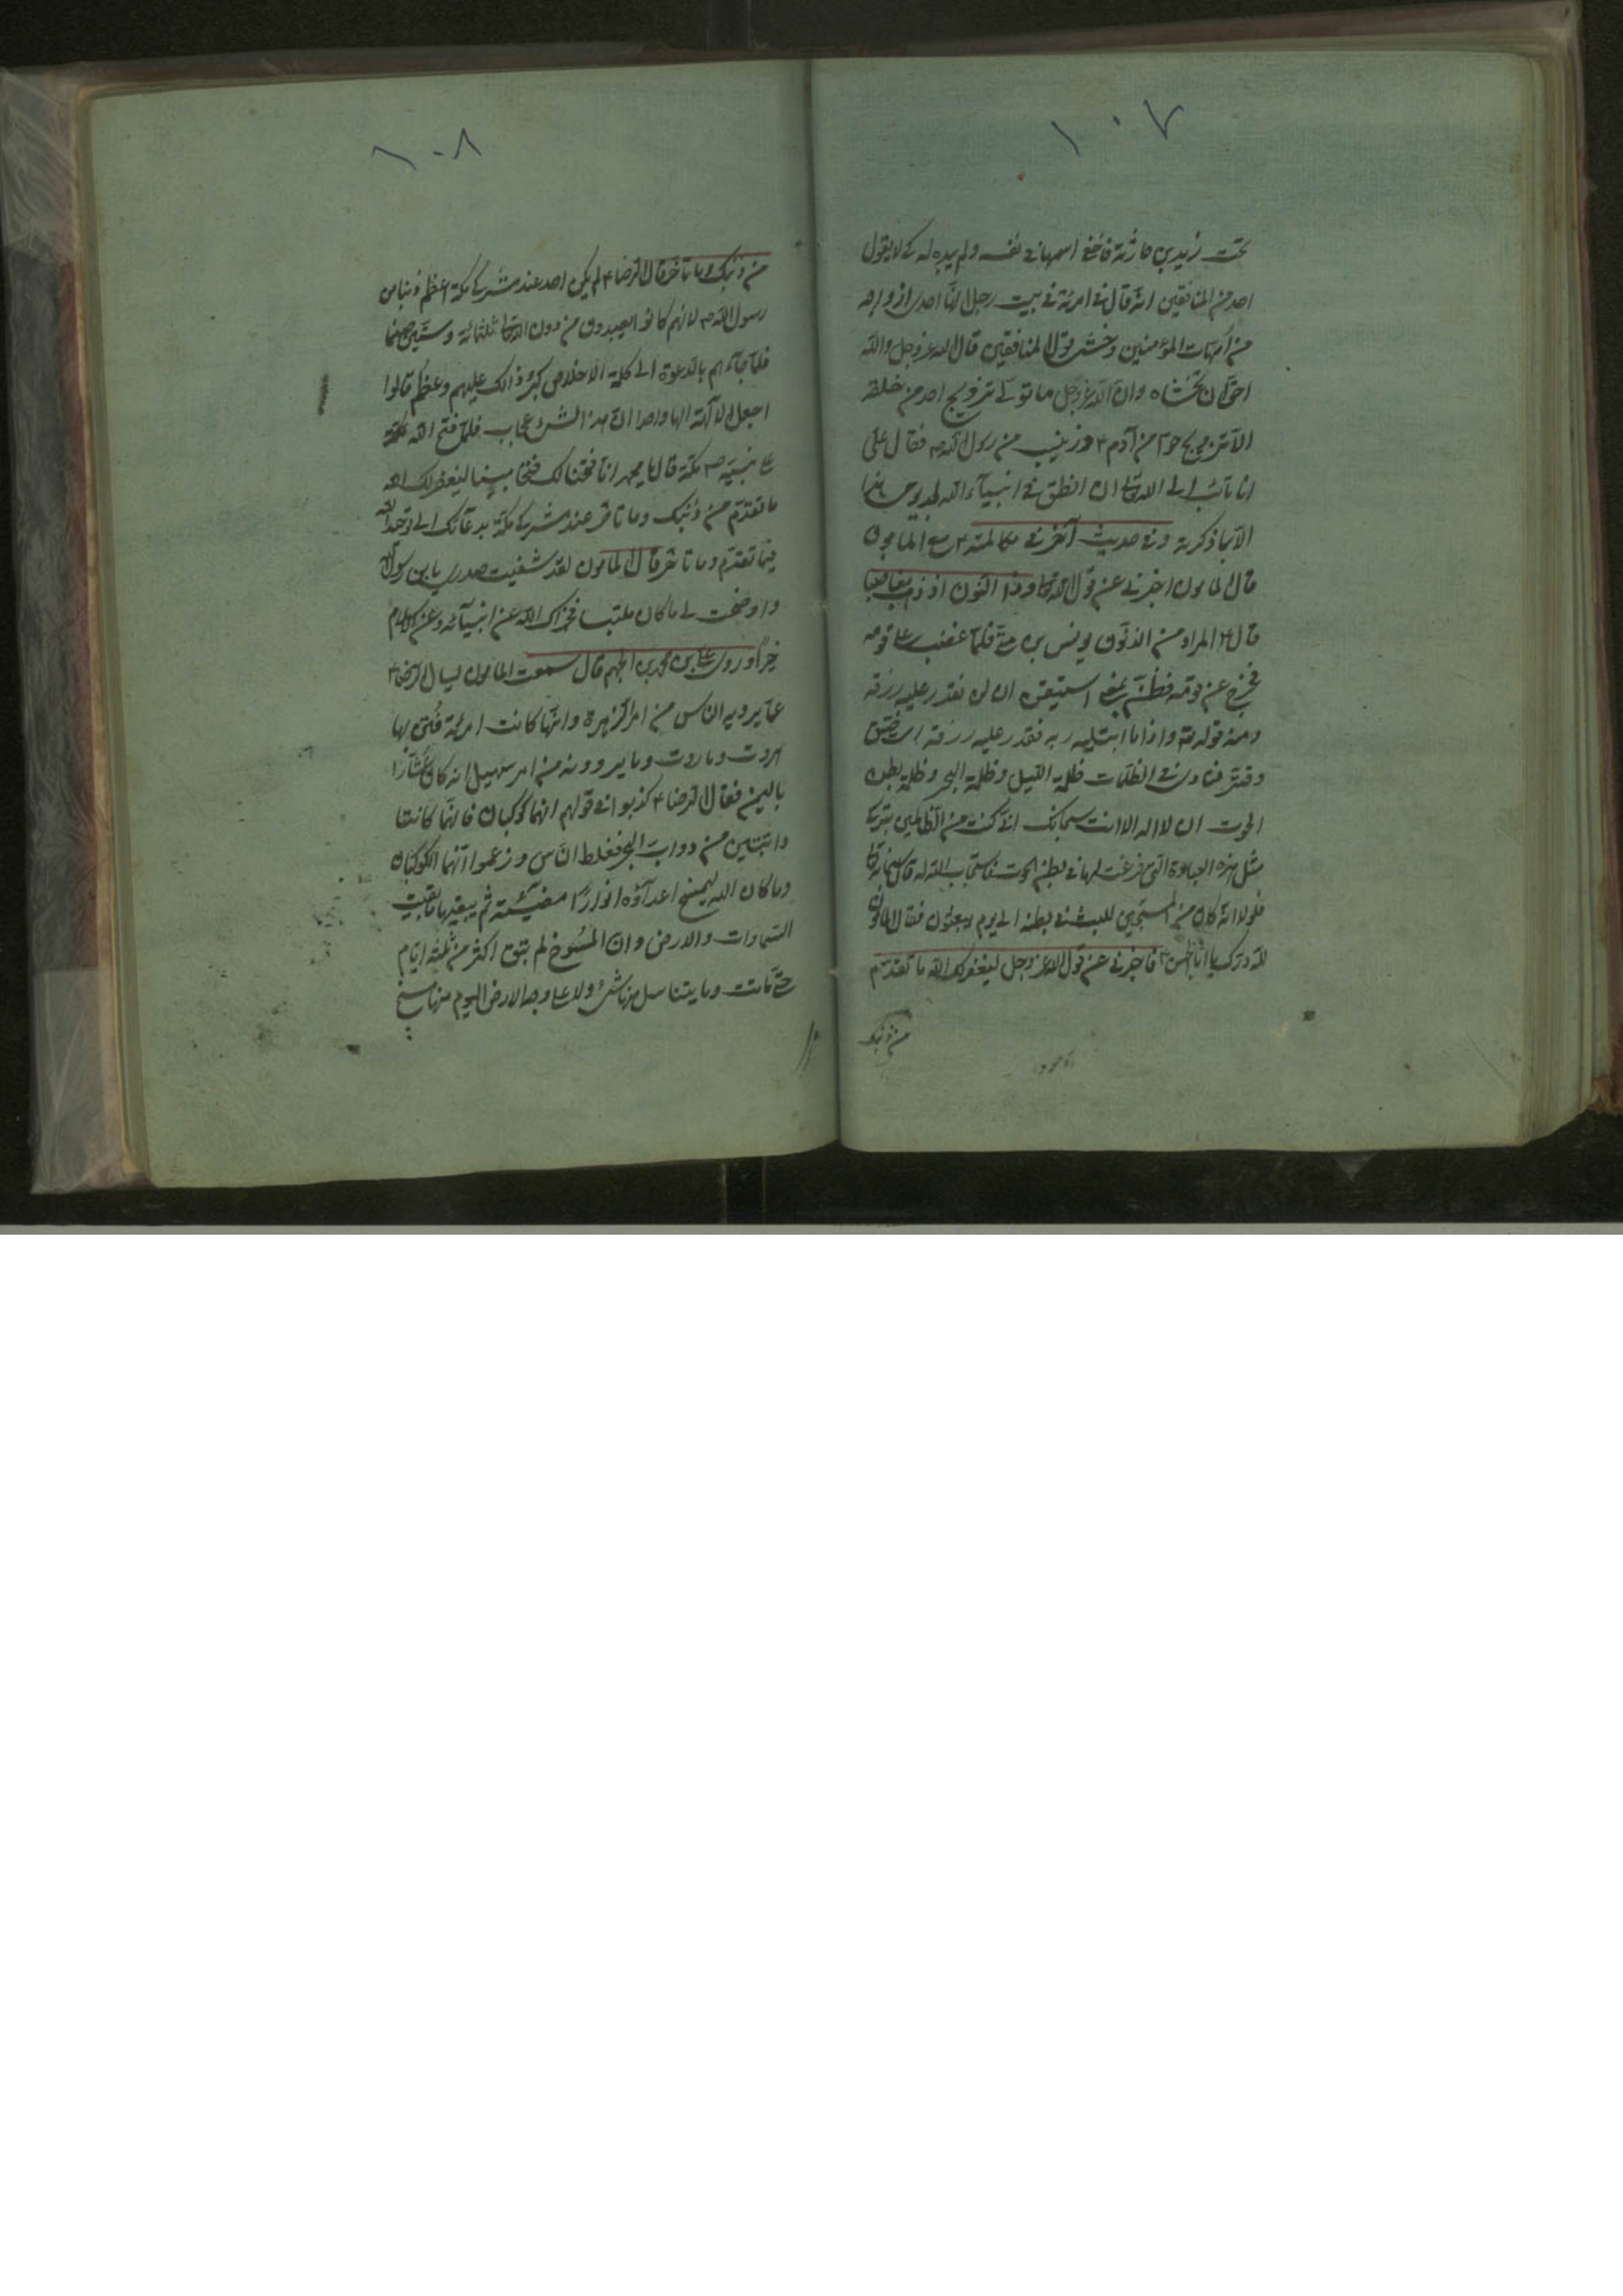 ١٠٧
تحت زيد بن حارثة فاخفى اسمها فى نفسه ولم يبده له لكيلا يقول
احد من المنافقين انه قال فى امرئة فى بيت رجل انها احد ازواجه
من امهات المؤمنين وخشى قول المنافقين قال الله عز وجل والله
احق ان تخشاه وان الله عز وجل ما تولى تزويج احد من خلقه
الا تزويج حوا من آدم ٤ وزينب من رسول الله ص فقال على
انا تائب الى الله تعالى ان انطق فى انبيآء الله بعد يومى هذا
الا بما ذكرته وفى حديث آخر فى مكالمته ٤ مع المامون
قال المامون اخبرنى عن قول الله تعالى وذا النون اذ ذهب مغاضبا
قال ٤ المراد من الذنون يونس بن متى فلما غضب على قومه
فخرج عن قومه فظن بمعنى استيقن ان لن نقدر عليه رزقه
ومنه قوله تعه واذا ما ابتليه ربه فقدر عليه رزقه اى ضيق
وقتر فنادى فى الظلمات ظلمة الليل وظلمة البحر وظلمة بطن
الحوت ان لا اله الا انت سبحانك انى كنت من الظالمين بتركى
مثل هذه العبادة التى فرغت لها فى بطن الحوت فاستجاب الله له قال سبحانه تعالى
فلولا انه كان من المسبحين للبث فى بطنه الى يوم يبعثون فقال المامون
لله درك يا ابا الحسن ٤ فاخبرنى عن قول الله عز وجل ليغفر لك الله ما تقدم
من ذنبك
١٠٨
من ذنبك وما تأخر قال الرضا ٤ لم يكن احد عند مشركى مكة اعظم ذنبا من
رسول الله ص لانهم كانوا يعبدون من دون الله تعالى ثلثمائة وستين صنما
فلما جآءهم بالدعوة الى كلمة الاخلاص كبر ذالك عليهم وعظم قالوا
اجعل الالهة الها واحدا ان هذا لشئ عجاب فلما فتح الله
على نبيه ص مكة قال يا محمد انا فتحنا لك فتحا مبينا ليغفر لك الله
ما تقدم من ذنبك وما تاخر عند مشركى مكة بدعآئك الى توحيد الله
فيما تقدم وما تاخر قال المامون لقد شفيت صدرى يا بن رسول الله
واوضحت لى ما كان ملتبسا فجزاك الله عن انبيآئه وعن الاسلام
خيرا وروى على بن محمد بن الجهم قال سمعت المامون يسال الرضا ٤
عما يرويه الناس من امر الزهرة وانها كانت امرئة فتن بها
هروت وماروت وما يروونه من امر سهيل انه كان عشارا
باليمن فقال الرضا ٤ كذبوا فى قولهم انهما كوكبان فانهما كانتا
دابتين من دواب البحر فغلط الناس وزعموا انهما الكوكبان
وما كان الله ليمسخ اعدآؤه انوارا مضيئة ثم يبقيها ما بقيت
السموات والارض وان المسوخ لم تبق اكثر من ثلثة ايام
حتى ماتت وما يتناسل منها شئ ولا على وجه الارض اليوم منها مسخ